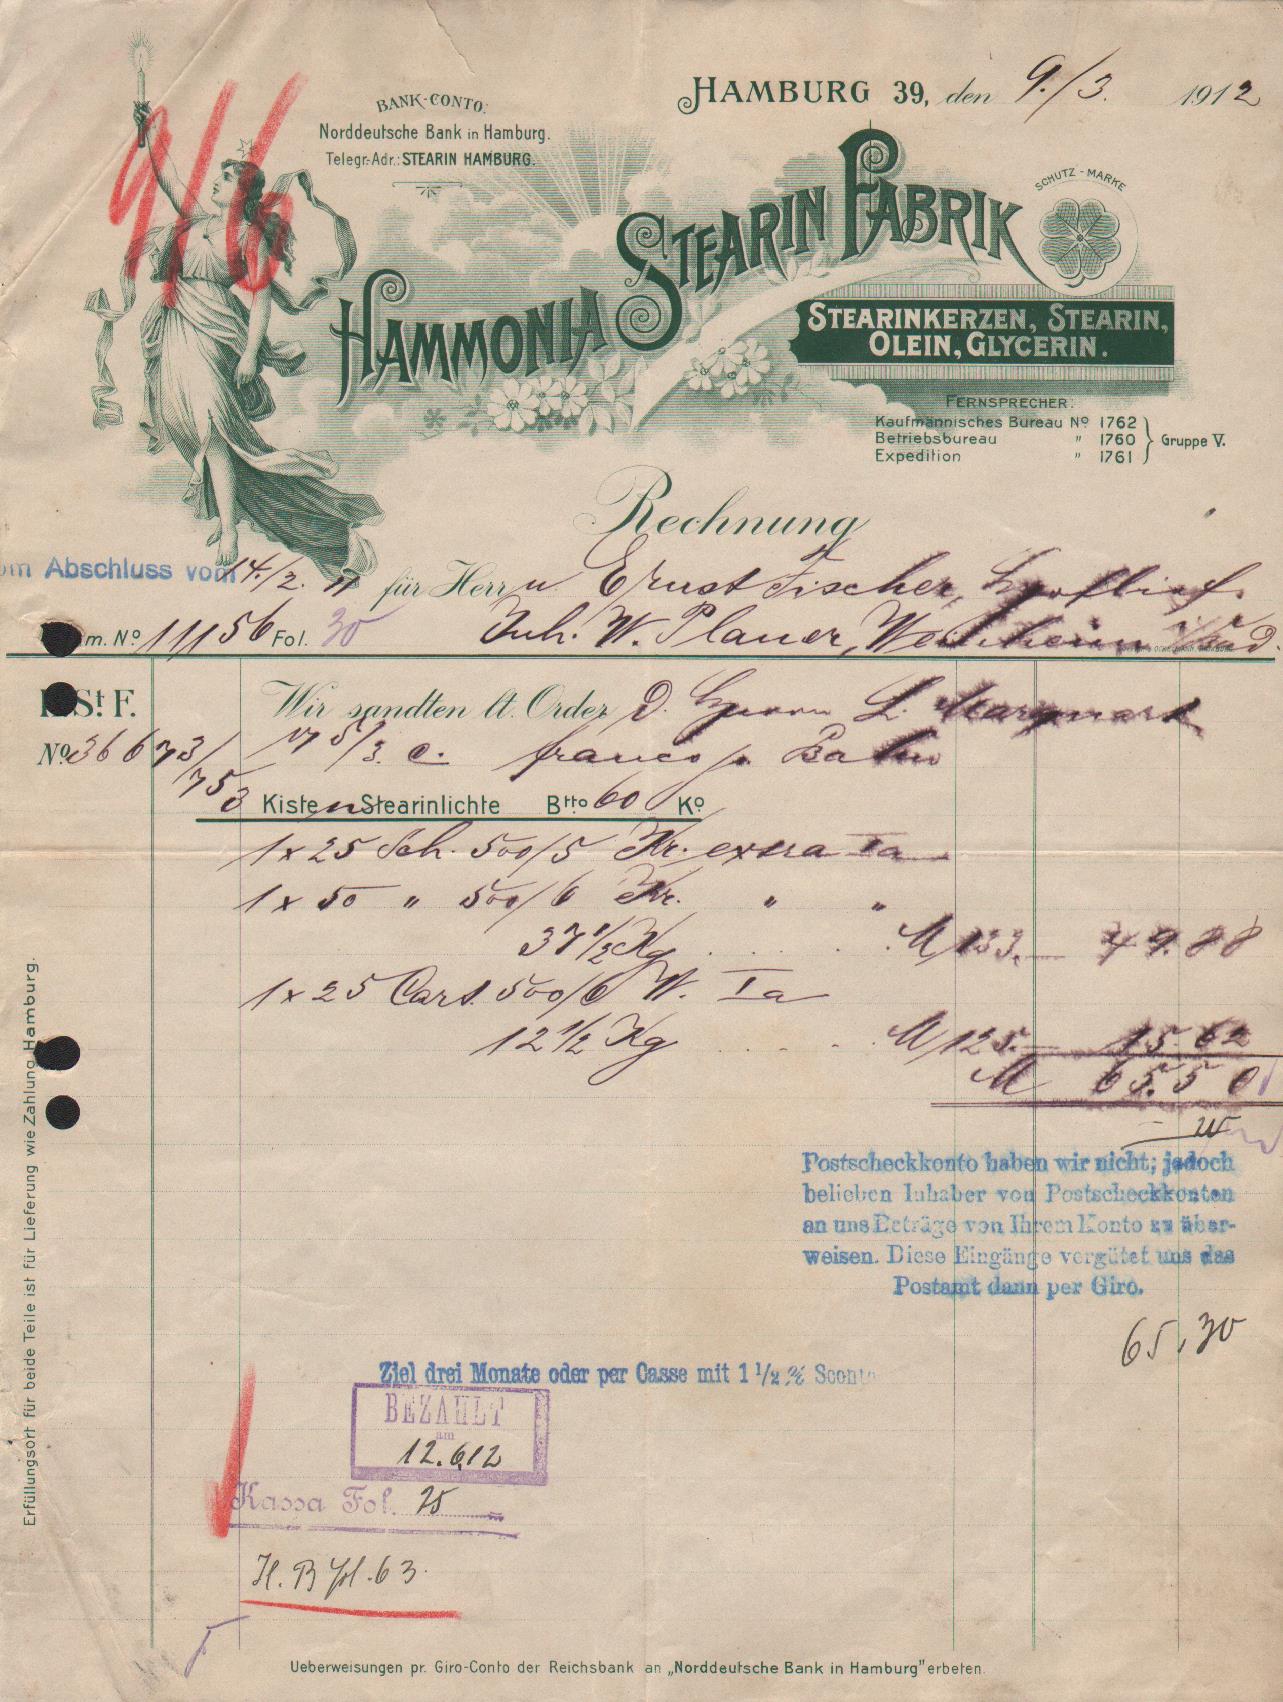 BANK-CONTO:
Norddeutsche Bank in Hamburg.
Telegr.-Adr.: STEARIN HAMBURG.
HAMBURG 39, den 9./3. 1912
9/6
HAMMONIA STEARIN FABRIK
SCHUTZ-MARKE
STEARINKERZEN, STEARIN,
OLEIN, GLYCERIN.
FERNSPRECHER:
Kaufmännisches Bureau No 1762
Betriebsbureau " 1760
Expedition " 1761
Gruppe V.
Rechnung
om Abschluss vom 14./2. 11 für Herrn Ernst Fischer,
m. No 11156 Fol. 30 Inh. W. Planer,
St F. Wir sandten lt. Order d. Herrn L.
No 36673/ 5/3. c. franco p. Bahn
753 Kisten Stearinlichte Btto 60 Ko
1 x 25 Sch. 500/5 Kr. extra Ia
1 x 50 " 500/6 Kr. " "
37 1/2 Kg M 133.— 49.88
1 x 25 Cart. 500/6 W. Ia
12 1/2 Kg M 125.— 15.62
M 65.50
Postscheckkonto haben wir nicht; jedoch
belieben Inhaber von Postscheckkonten
an uns Beträge von Ihrem Konto zu über-
weisen. Diese Eingänge vergütet uns das
Postamt dann per Giro.
65,30
Ziel drei Monate oder per Casse mit 1 1/2 % Sconto
BEZAHLT
am
12.6.12
Kassa Fol. 25
H. B. fol. 63.
Erfüllungsort für beide Teile ist für Lieferung wie Zahlung Hamburg.
Ueberweisungen pr. Giro-Conto der Reichsbank an „Norddeutsche Bank in Hamburg" erbeten.